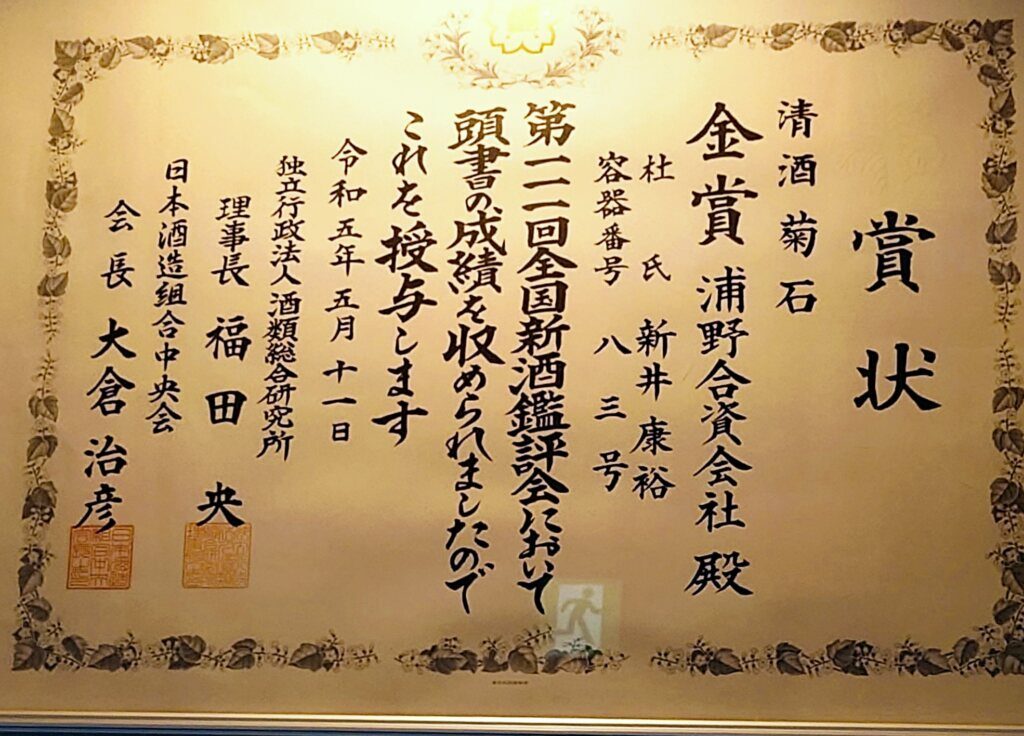 賞状
清酒 菊石
金賞 浦野合資会社 殿
杜氏 新井康裕
容器番号 八三号
第一一一回全国新酒鑑評会において
頭書の成績を収められましたので
これを授与します
令和五年五月十一日
独立行政法人 酒類総合研究所
理事長 福田 央
日本酒造組合中央会
会長 大倉治彦